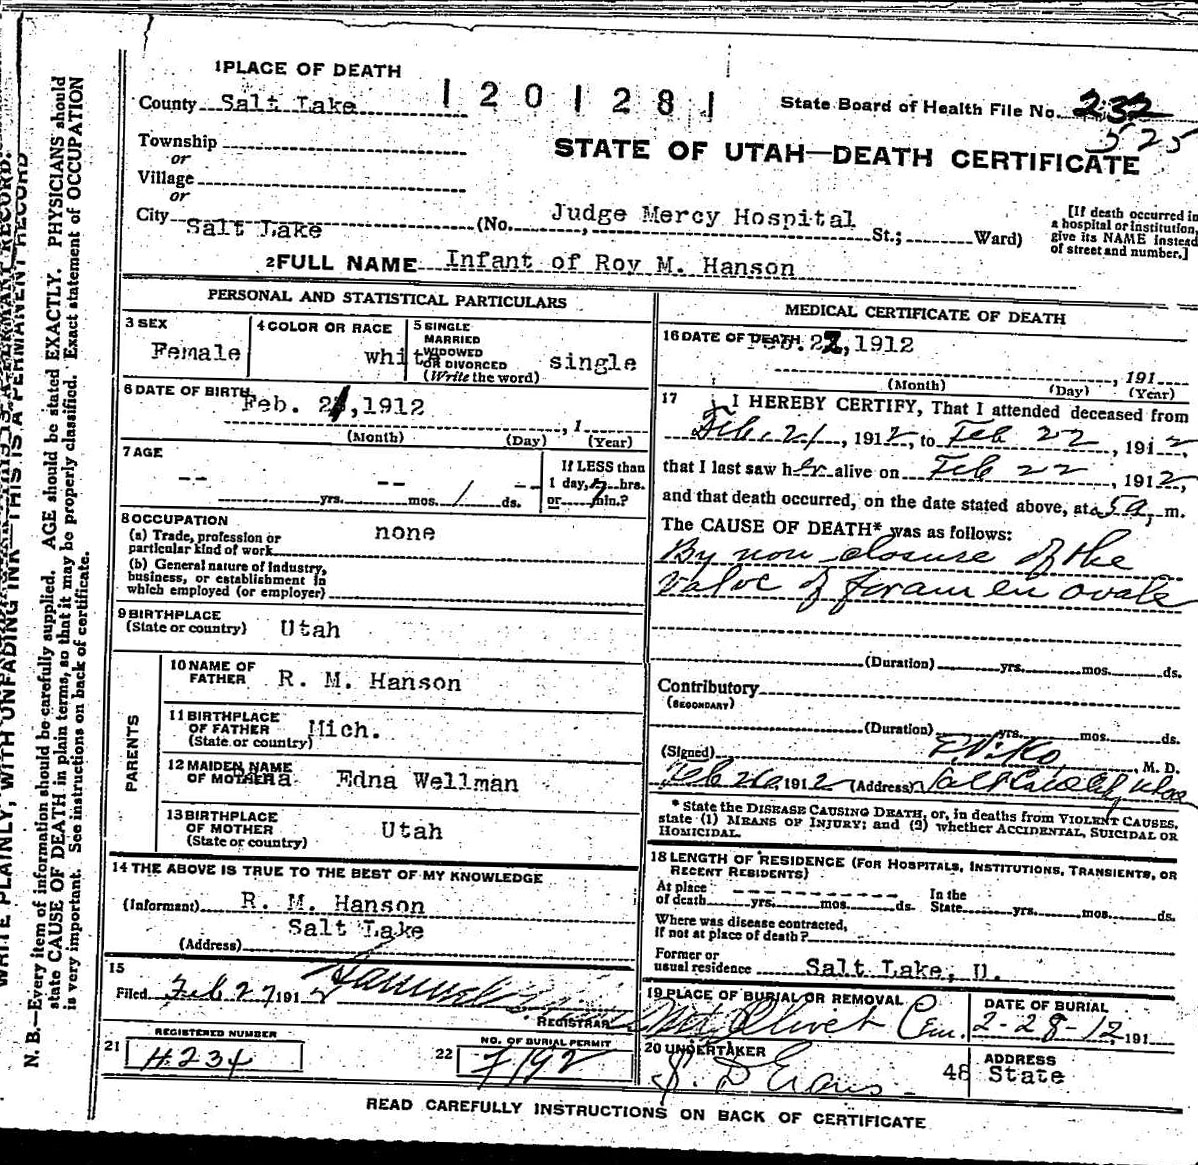 1 PLACE OF DEATH
County Salt Lake
1201281
State Board of Health File No. 232
525
Township
or
Village
or
City Salt Lake
STATE OF UTAH—DEATH CERTIFICATE
(No. Judge Mercy Hospital St.; Ward)
[If death occurred in
a hospital or institution,
give its NAME instead
of street and number.]
2 FULL NAME Infant of Roy M. Hanson
PERSONAL AND STATISTICAL PARTICULARS
3 SEX
Female
4 COLOR OR RACE
white
5 SINGLE
MARRIED
WIDOWED
OR DIVORCED
(Write the word)
single
6 DATE OF BIRTH
Feb. 21, 1912
, 1
(Month) (Day) (Year)
7 AGE
-- -- --
yrs. mos. 1 ds.
If LESS than
1 day, hrs.
or min.?
8 OCCUPATION
none
(a) Trade, profession or
particular kind of work
(b) General nature of industry,
business, or establishment in
which employed (or employer)
9 BIRTHPLACE
(State or country) Utah
PARENTS
10 NAME OF
FATHER R. M. Hanson
11 BIRTHPLACE
OF FATHER
(State or country) Mich.
12 MAIDEN NAME
OF MOTHER Edna Wellman
13 BIRTHPLACE
OF MOTHER
(State or country) Utah
14 THE ABOVE IS TRUE TO THE BEST OF MY KNOWLEDGE
(Informant) R. M. Hanson
Salt Lake
(Address)
15
Filed Feb 27 1912
REGISTRAR
REGISTERED NUMBER
21 H.234
NO. OF BURIAL PERMIT
22 7192
MEDICAL CERTIFICATE OF DEATH
16 DATE OF DEATH Feb. 22, 1912
, 191
(Month) (Day) (Year)
17 I HEREBY CERTIFY, That I attended deceased from
Feb. 21, 1912, to Feb 22, 1912,
that I last saw her alive on Feb 22, 1912,
and that death occurred, on the date stated above, at 5 a, m.
The CAUSE OF DEATH* was as follows:
By non closure of the
valve of foramen ovale
(Duration) yrs. mos. ds.
Contributory
(SECONDARY)
(Duration) yrs. mos. ds.
(Signed) M. D.
Feb 26, 1912 (Address) Salt Lake City Utah
* State the DISEASE CAUSING DEATH, or, in deaths from VIOLENT CAUSES,
state (1) MEANS OF INJURY; and (2) whether ACCIDENTAL, SUICIDAL OR
HOMICIDAL.
18 LENGTH OF RESIDENCE (FOR HOSPITALS, INSTITUTIONS, TRANSIENTS, OR
RECENT RESIDENTS)
At place
of death yrs. mos. ds.
In the
State yrs. mos. ds.
Where was disease contracted,
if not at place of death?
Former or
usual residence Salt Lake, U.
19 PLACE OF BURIAL OR REMOVAL
Mt Olivet Cem.
DATE OF BURIAL
2-28-12, 191
20 UNDERTAKER
S. D Evans
ADDRESS
48 State
READ CAREFULLY INSTRUCTIONS ON BACK OF CERTIFICATE
WRITE PLAINLY, WITH UNFADING INK—THIS IS A PERMANENT RECORD
N. B.—Every item of information should be carefully supplied. AGE should be stated EXACTLY. PHYSICIANS should
state CAUSE OF DEATH in plain terms, so that it may be properly classified. Exact statement of OCCUPATION
is very important. See instructions on back of certificate.